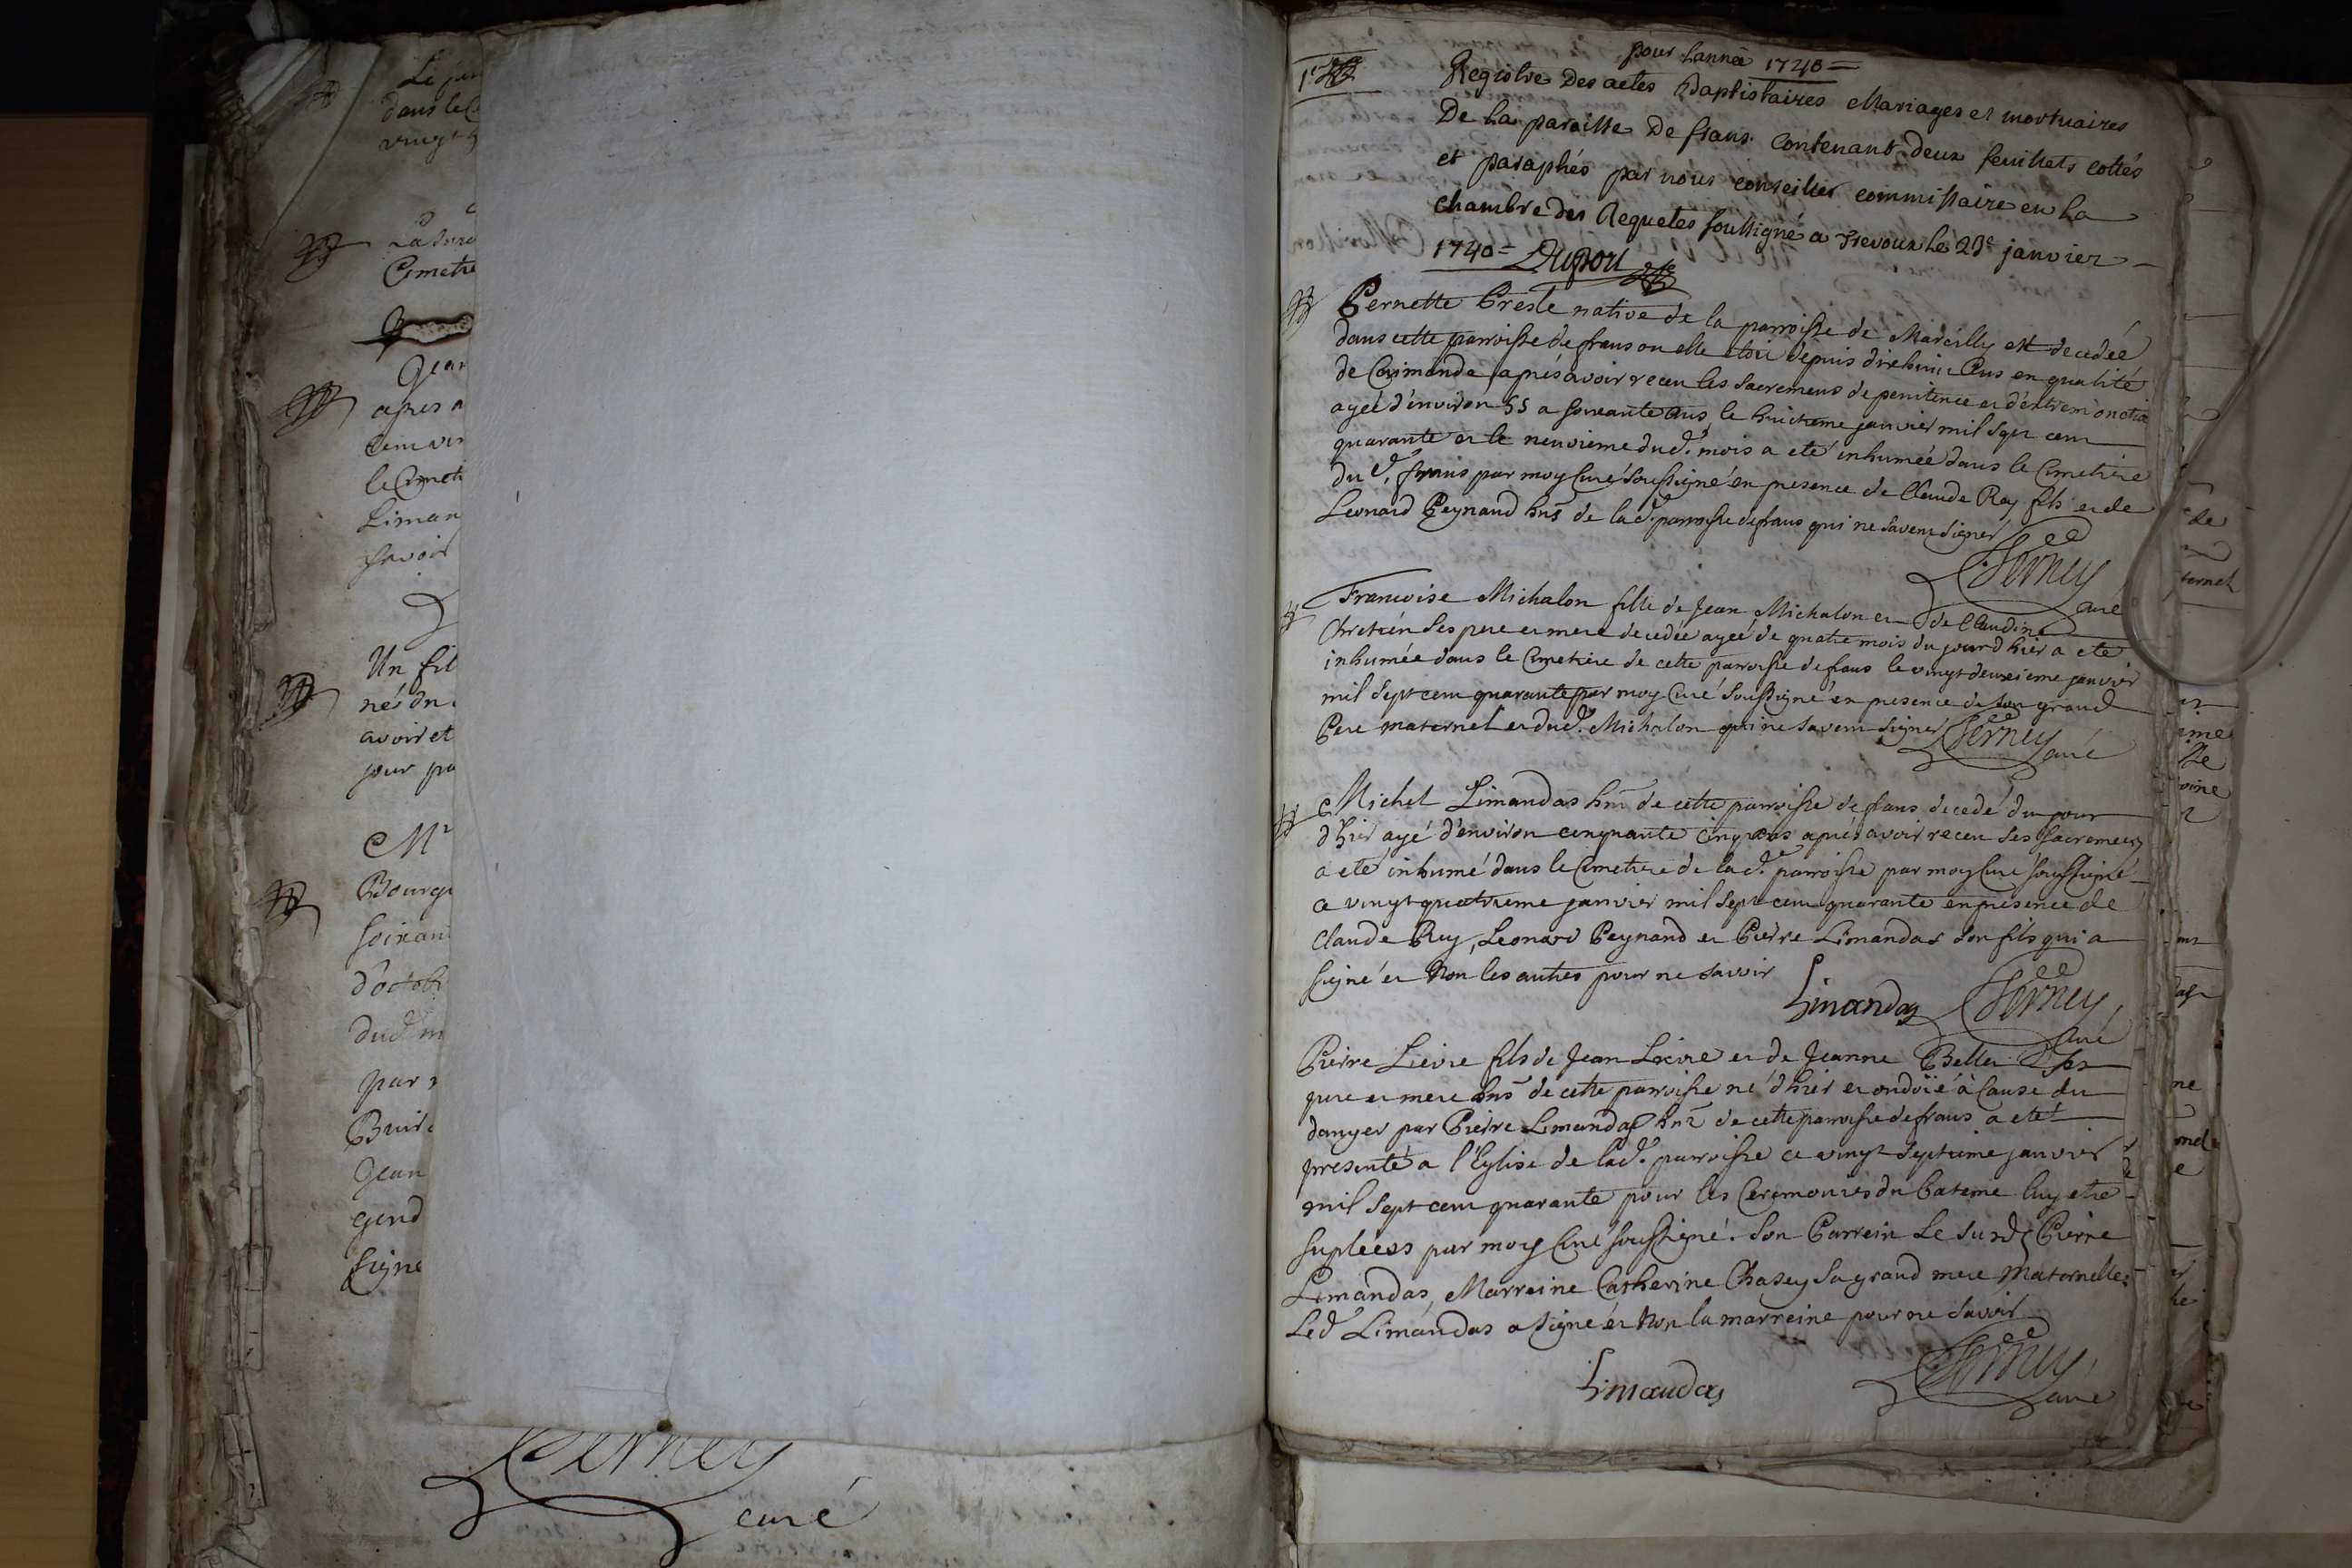 Le
dans le
vingt
Cimeti
Jean
apres a
cent vin
le Cimeti
Liman
savoir
Un fil
né du
avoir et
jour pa
Mr
Bourge
soixan
d'octob
dud. m
par
Jean
gend
signe
Perney
curé
pour L'année 1740 =
1er
Registre Des actes Baptistaires Mariages et mortuaires
De La paroisse De frans. Contenant Deux feuillets cottés
et paraphés par nous conseiller commissaire en La
chambre des Requetes soussigné a Trevoux Le 23e janvier
1740 =
Pernette Presle native de la parroisse de Marcilly est decedée
dans cette parroisse de frans ou elle etoit depuis dixhuit Ans en qualité
de aprés avoir receu les sacremens de penitence et d'extrem'onction
agée d'environ 55 a soixante Ans, le huitieme janvier mil sept cent
quarante et le neuvieme dud. mois a eté inhumée dans le Cimetiere
dud. frans par moy Curé soussigné en presence de Claude Rey fils et de
Leonard Peynaud hns de lad. parroisse de frans qui ne savent signer
Perney
curé
Francoise Michalon fille de Jean Michalon et de Claudine
Chretien ses pere et mere decedée agée de quatre mois du jour d'hier a eté
inhumée dans le Cimetiere de cette parroisse de frans le vingt deuxieme janvier
mil sept cent quarante par moy Curé soussigné en presence de son grand
Pere maternel et dud. Michalon qui ne savent signer Perney
curé
Michel Limandas hnt de cette parroisse de frans decedé du jour
d'hier agé d'environ cinquante cinq ans aprés avoir receu ses sacremens
a eté inhumé dans le Cimetiere de lad. parroisse par moy Curé soussigné
a vingt quatrieme janvier mil sept cent quarante en presence de
Claude Rey, Leonard Peynaud et Pierre Limandas son fils qui a
signé et Non les autres pour ne savoir
Limandas Perney
curé
Pierre Lievre fils de Jean Lievre et de Jeanne ses
pere et mere hns de cette parroisse né d'hier et ondoïé à Cause du
danger par Pierre Limandas hnt de cette parroisse de frans a eté
presenté a l'Eglise de lad. parroisse ce vingt septieme janvier
mil sept cent quarante pour les Ceremonies du Bateme luy etre
supleées par moy Curé soussigné. Son Parrein Le susd. Pierre
Limandas, Marreine Catherine Chasey sa grand mere maternelle:
Led. Limandas a signé et Non la marreine pour ne savoir
Perney
Limandas
curé